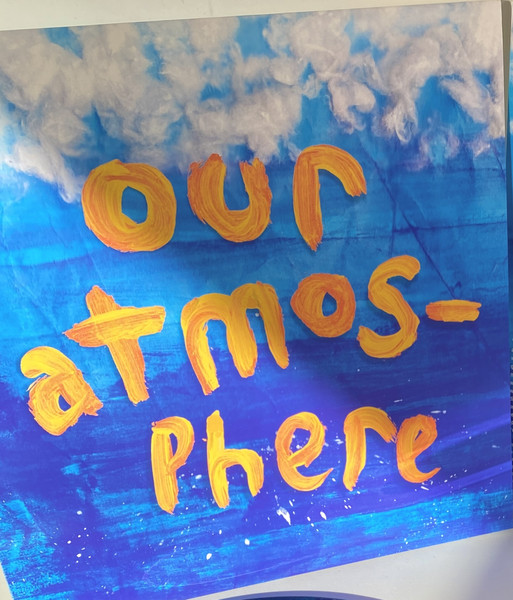 our
atmos-
phere